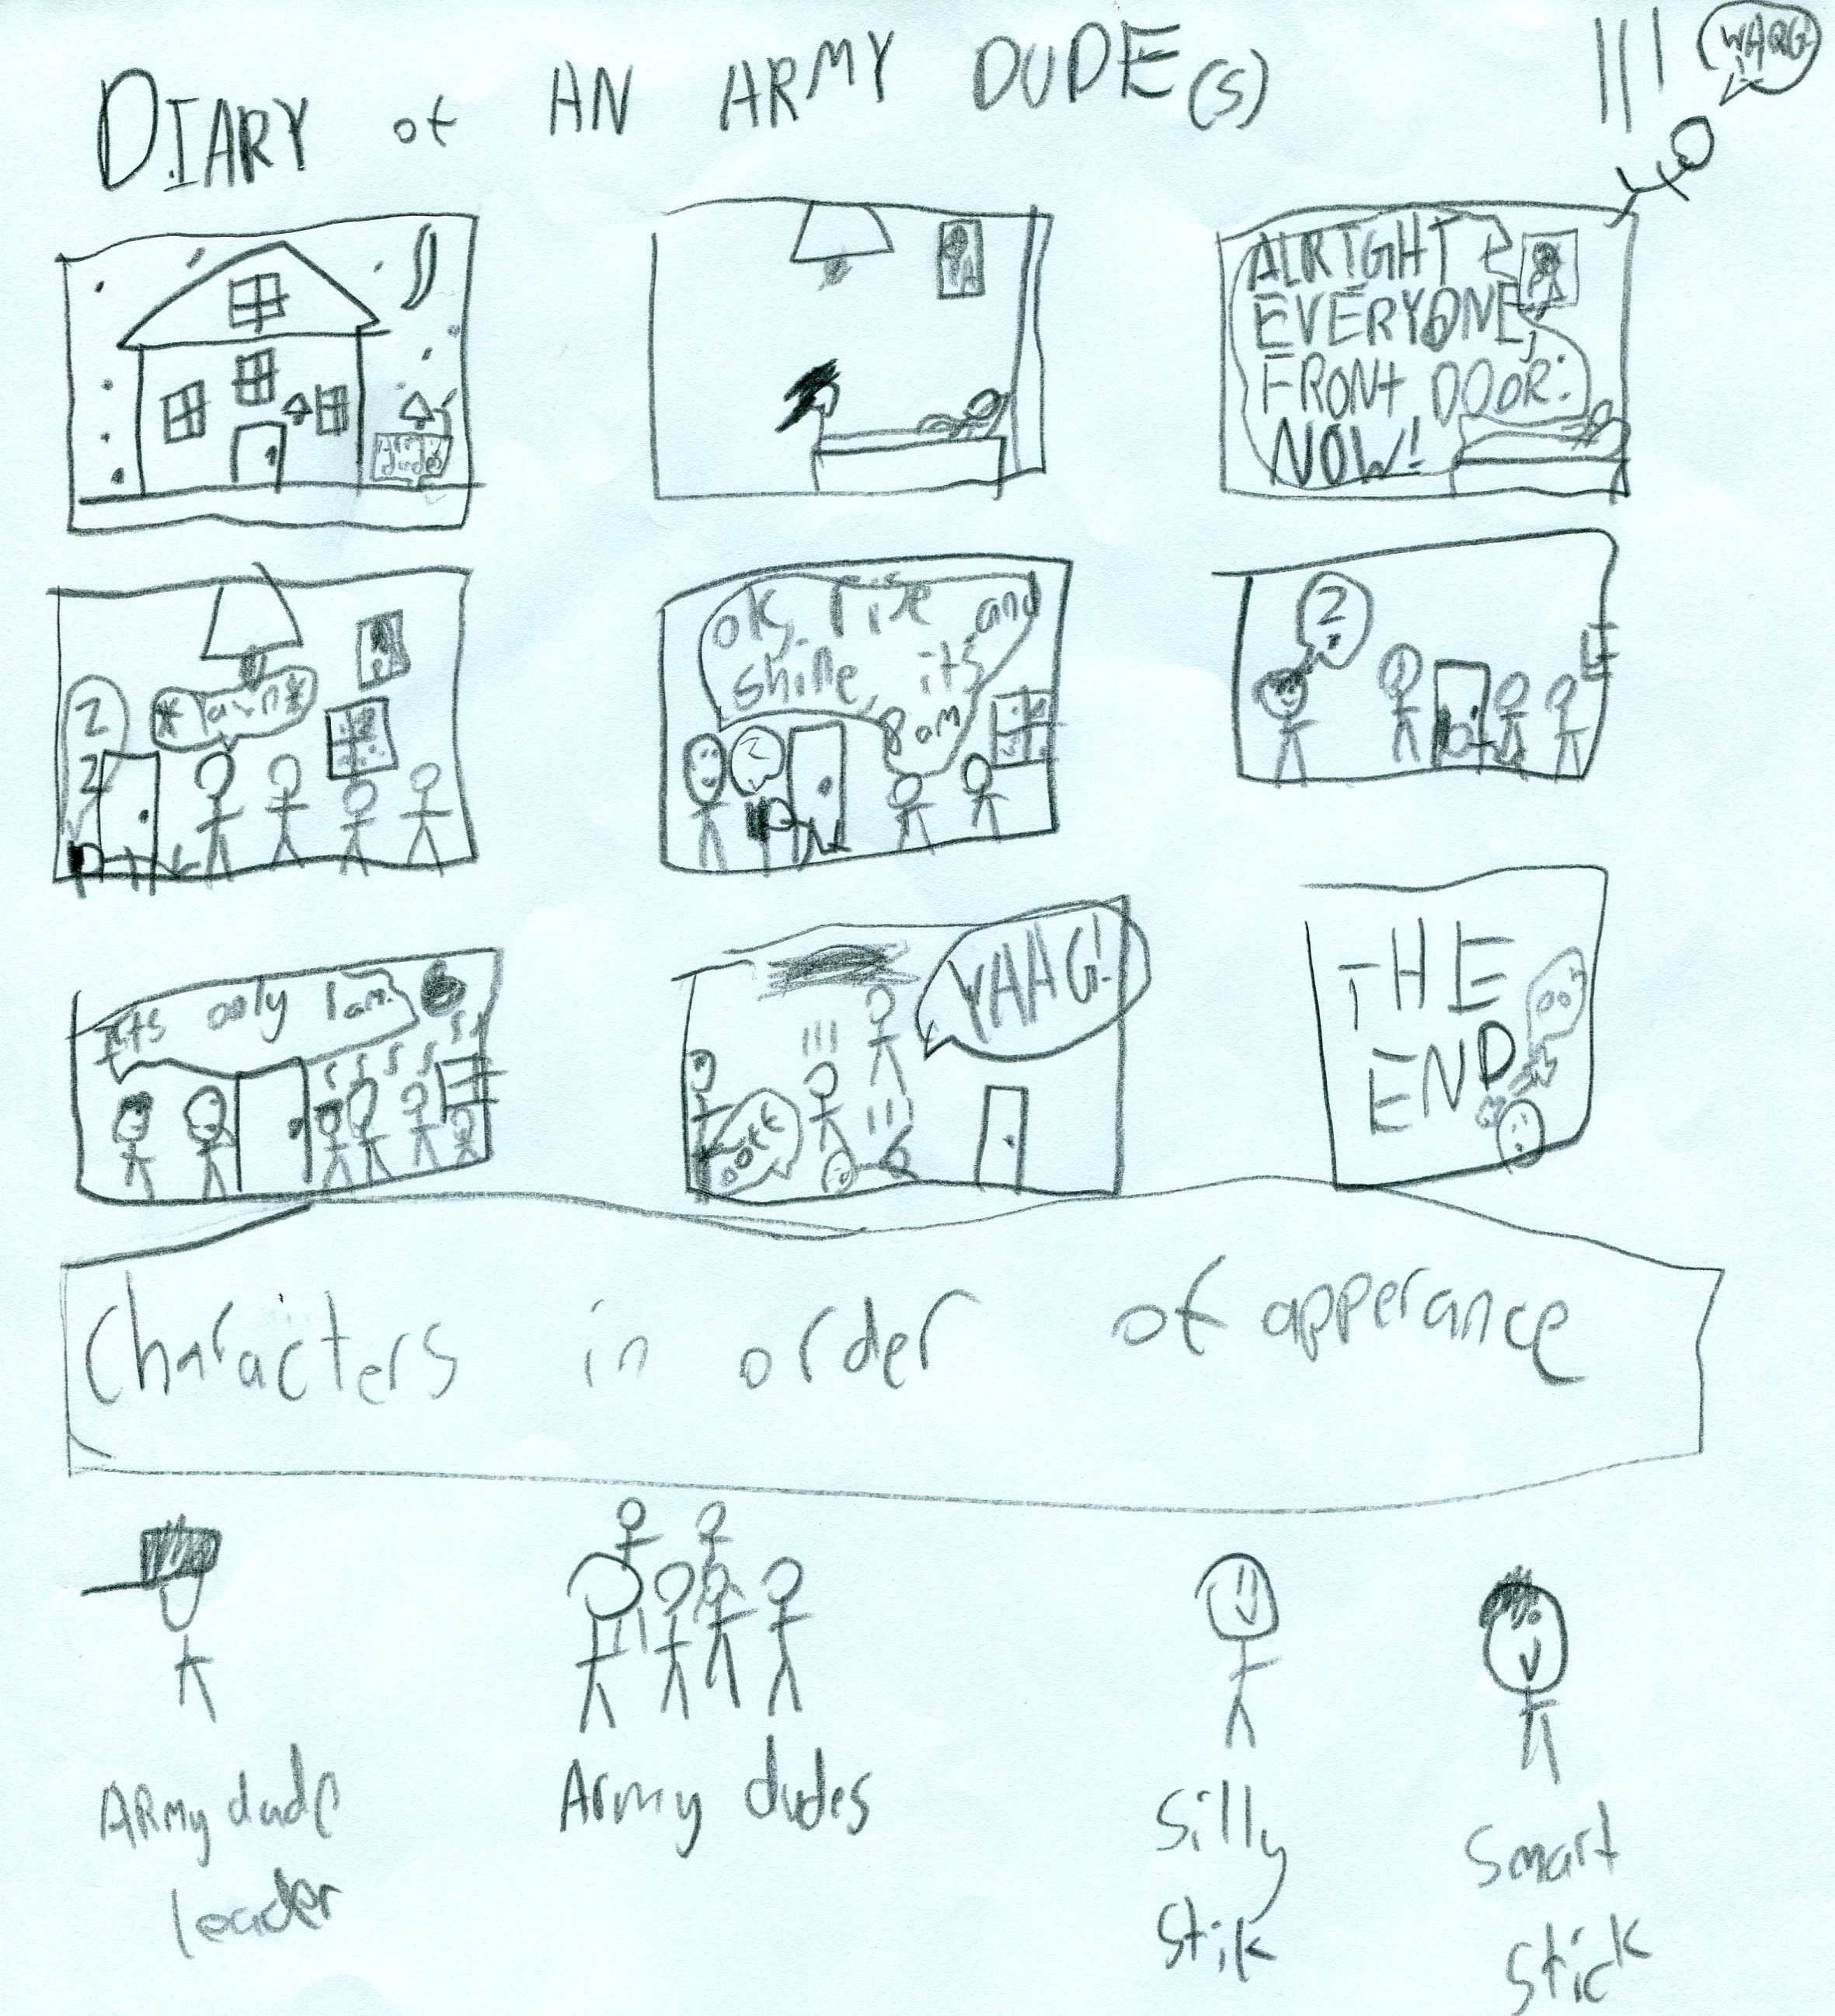 DIARY of AN ARMY DUDE(S)
WAAG!
ALRIGHT
EVERYONE,
FRONT DOOR:
NOW!
Z
Z
*Yawn*
ok, rise and
shine, its
8 am
Z
Z
Its only 1am.
YAAG!
THE
END
Characters in order of apperance
ARmy dude
leader
Army dudes
Silly
Stik
Smart
Stick